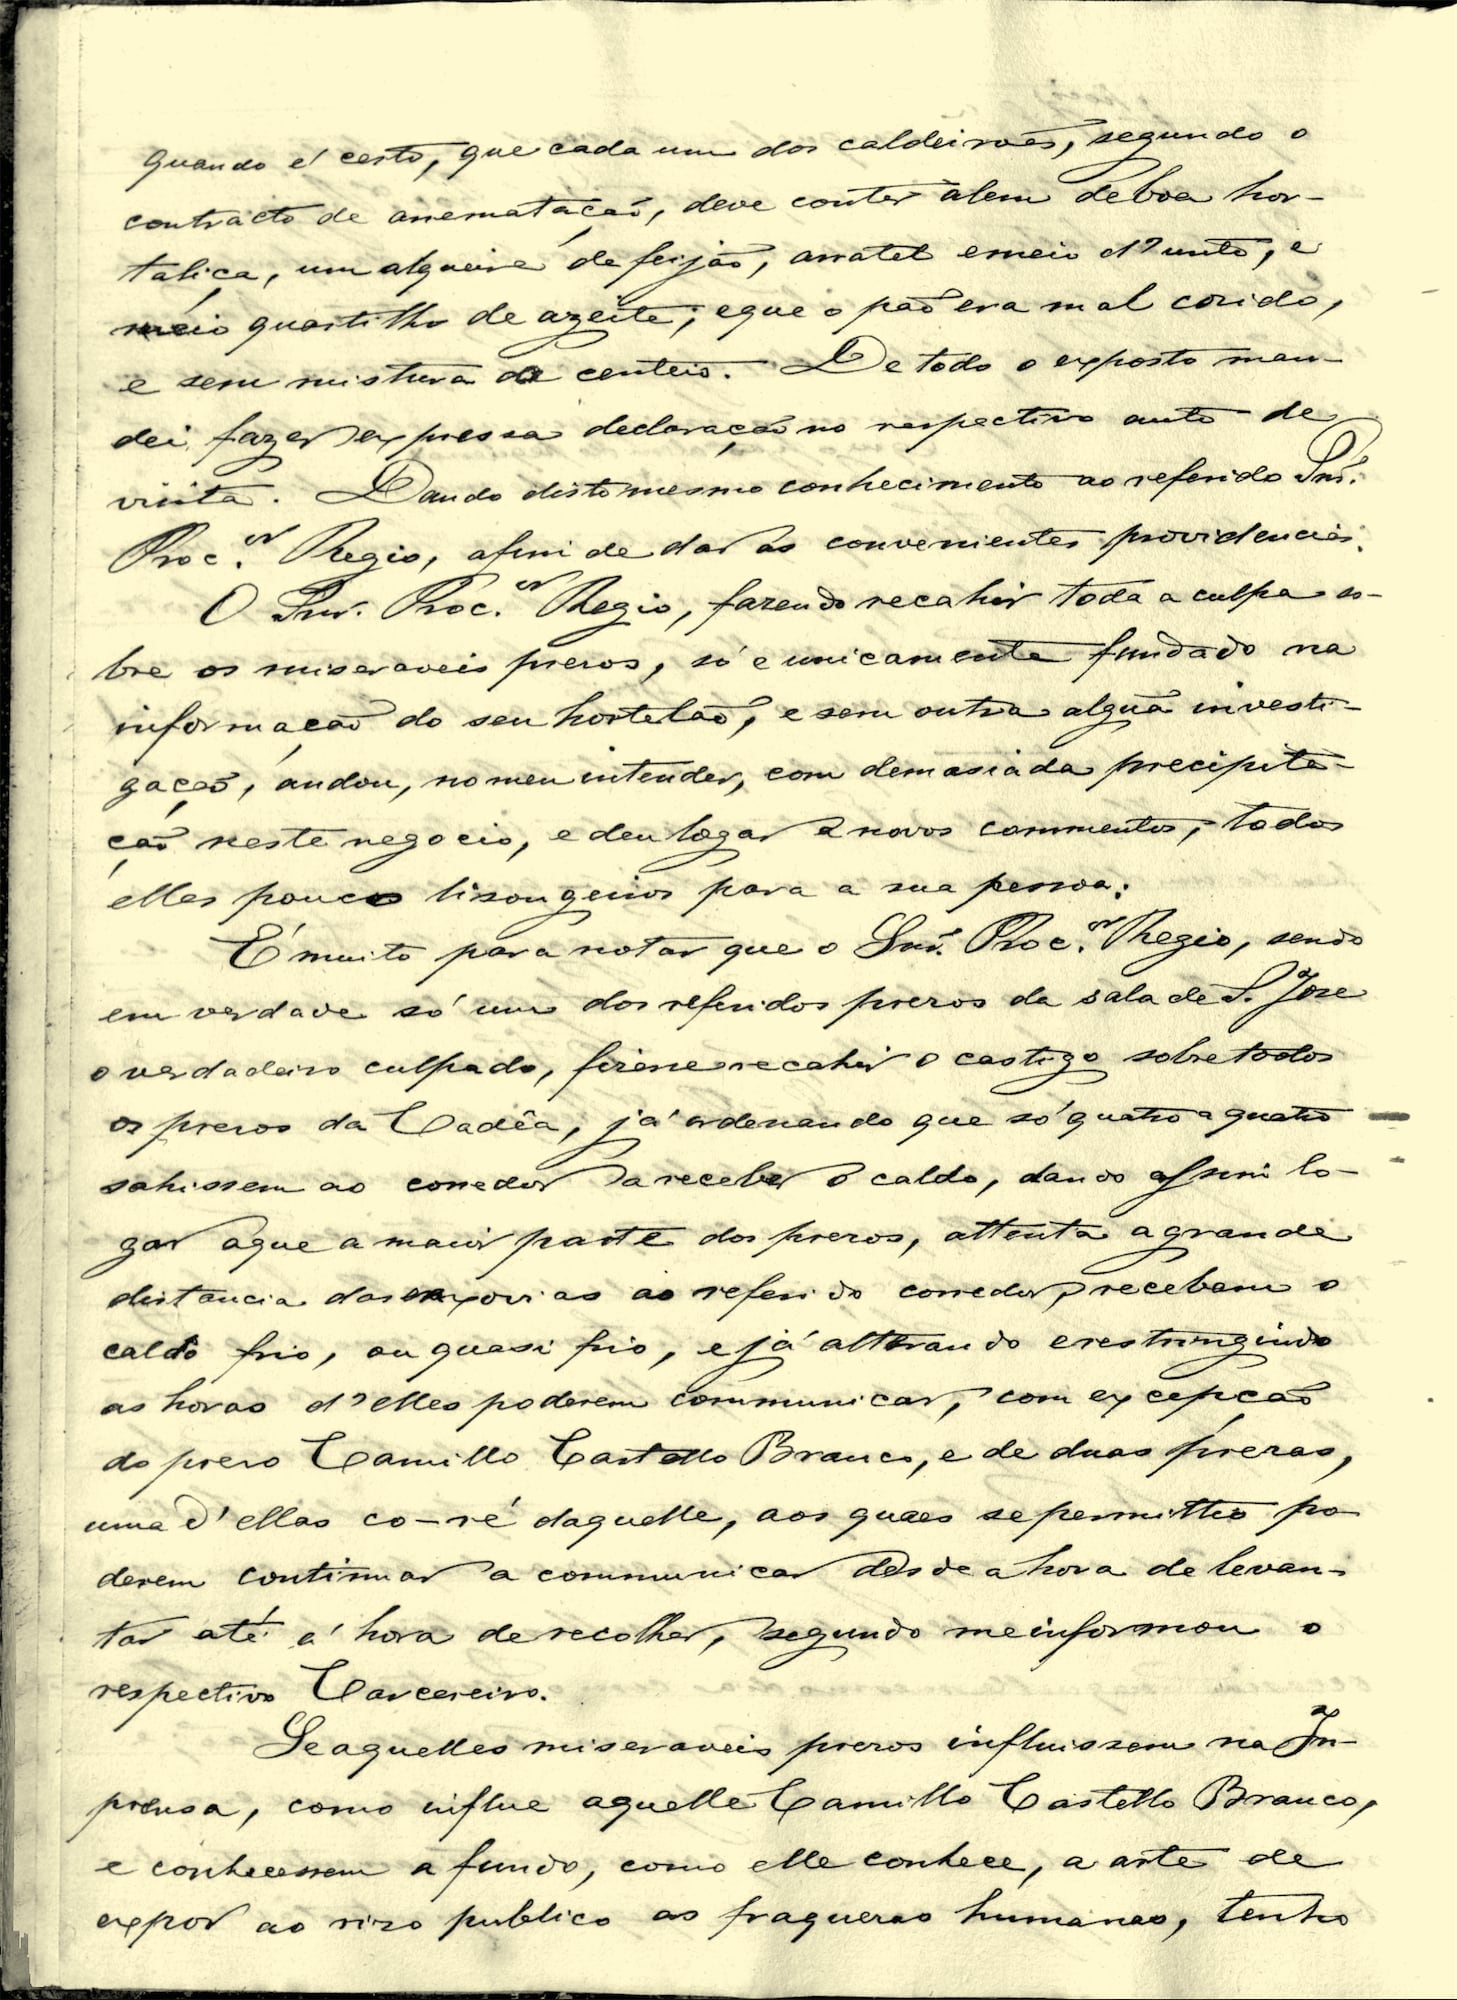 quando é certo, que cada um dos caldeiroẽs, segundo o
contracto de arrematação, deve conter alem de boa hor-
taliça, um alqueire de feijão, arratel e meio d'unto, e
meio quartilho de azeite; e que o paõ era mal cosido,
e sem mistura de centeio. De todo o exposto man-
dei fazer expressa declaração no respectivo auto de
visita. Dando disto mesmo conhecimento ao referido Snr.
Proc.or Regio, afim de dar as convenientes providencias.
O Snr. Proc.or Regio, fazendo recahir toda a culpa so-
bre os miseraveis prezos, só e unicamente fundado na
informação do seu hortelaõ, e sem outra alguã investi-
gação, andou, no meu intender, com demasiada precipita-
ção neste negocio, e deu logar a novos commentos, todos
elles pouco lisongeiros para a sua pessoa.
É muito para notar que o Snr. Proc.or Regio, sendo
em verdade só um dos referidos prezos da sala de S. Jose
o verdadeiro culpado, fizesse recahir o castigo sobre todos
os prezos da Cadêa, já ordenando que só quatro a quatro
sahissem ao corredor a receber o caldo, dando assim lo-
gar a que a maior parte dos prezos, attenta a grande
distancia das enxovias ao referido corredor, recebam o
caldo frio, ou quasi frio, e já alterando e restringindo
as horas d'elles poderem communicar, com excepcaõ
do prezo Camillo Castello Branco, e de duas prezas,
uma d'ellas co-ré daquelle, aos quaes se permittio po
derem continuar a communicar desde a hora de levan-
tar até á hora de recolher, segundo me informou o
respectivo Carcereiro.
Se aquelles miseraveis prezos influissem na Im-
prensa, como influe aquelle Camillo Castello Branco,
e conhecessem a fundo, como elle conhece, a arte de
expor ao rizo publico as fraquezas humanas, tenho